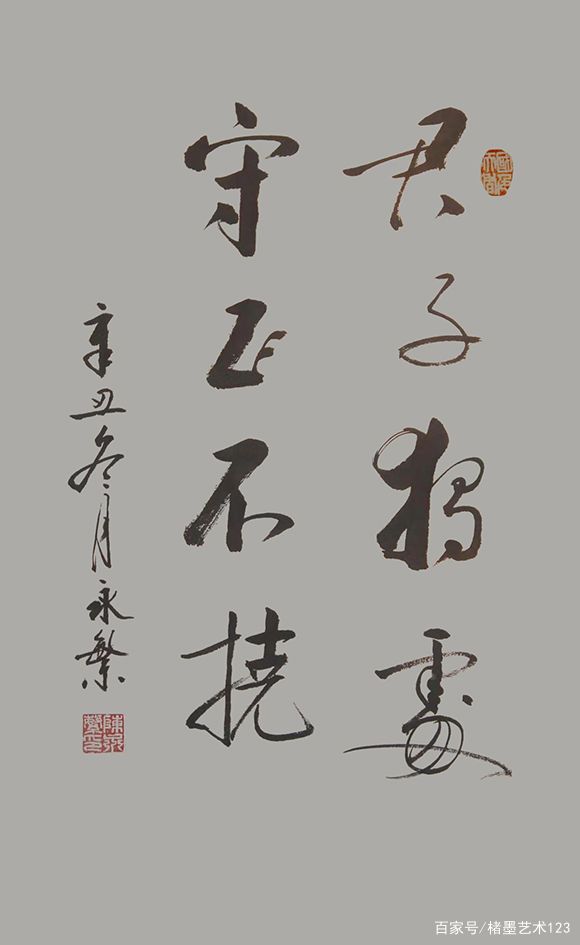 君子独處
守正不挠
辛丑冬月永繁
百家号/楮墨艺术123